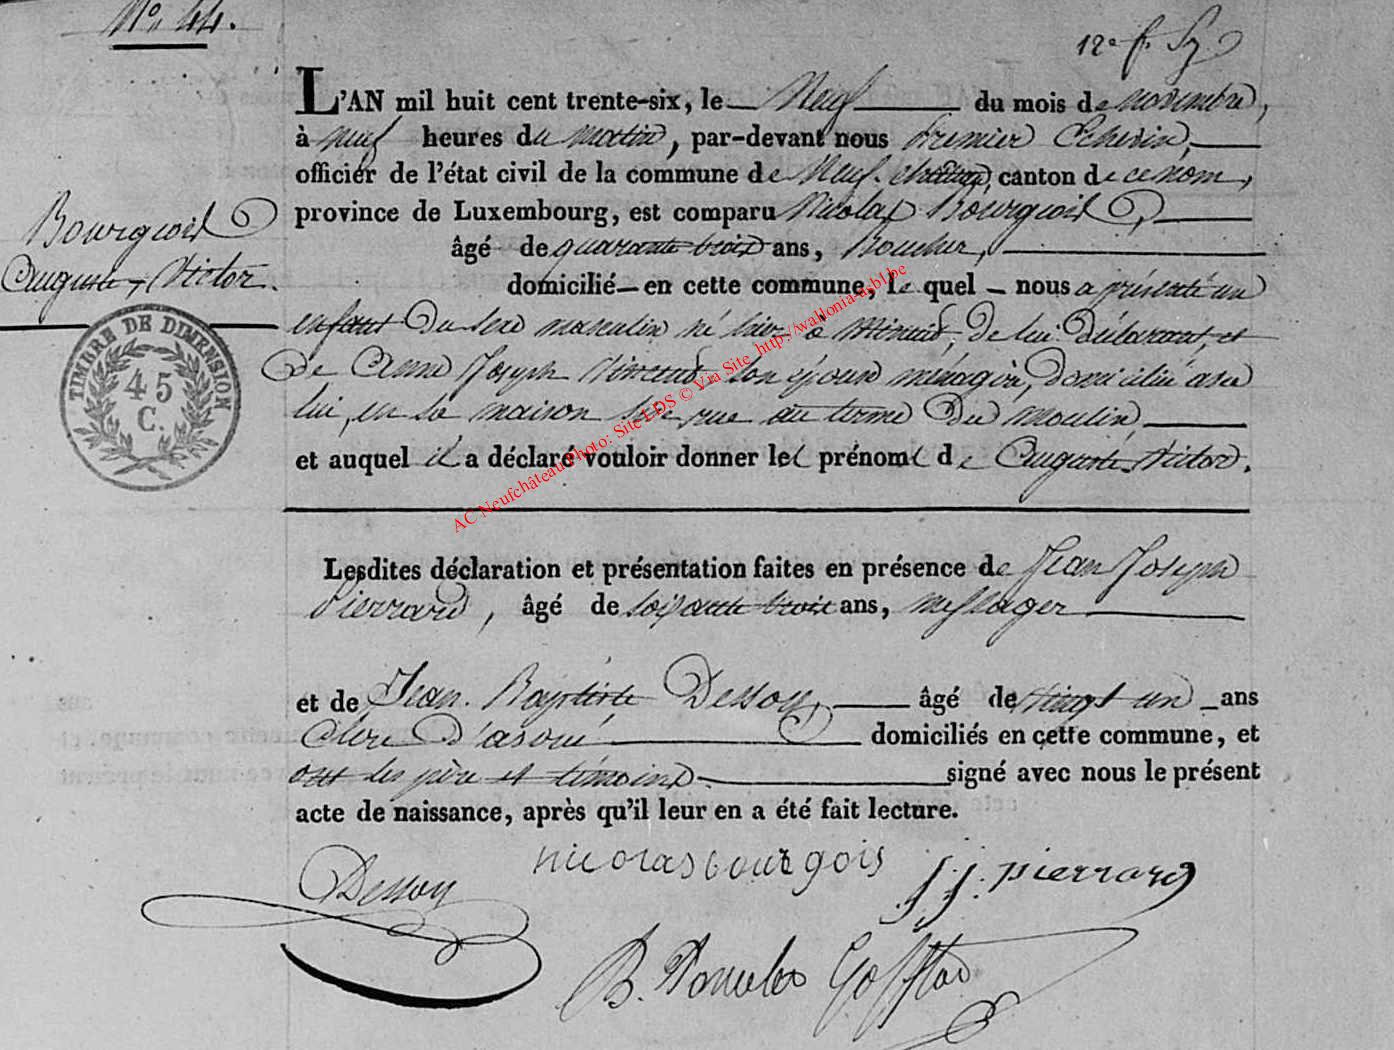 N° 44.
12e f.
L'AN mil huit cent trente-six, le Neuf du mois de novembre,
à neuf heures du matin, par-devant nous premier Echevin,
officier de l'état civil de la commune de Neuf-château, canton de ce nom,
province de Luxembourg, est comparu Nicolas Bourgois,
âgé de quarante trois ans, Boucher,
domicilié en cette commune, le quel nous a présenté un
enfant du sexe masculin né hier à Minuit, de lui déclarant et
de Anne Joseph son épouse ménagère, domiciliée avec
lui, en sa maison sise rue au terme du moulin,
et auquel il a déclaré vouloir donner les prénoms de Auguste, Victor.
Bourgois
Auguste, Victor.
TIMBRE DE DIMENSION
45
C.
AC Neufchâteau Photo: Site LDS © Via Site http://wallonia-asbl.be
Lesdites déclaration et présentation faites en présence de Jean Joseph
Pierrard, âgé de soixante trois ans, messager
et de Jean-Baptiste Dessoy, âgé de vingt un ans
Clerc d'avoué domiciliés en cette commune, et
ont les père et témoins signé avec nous le présent
acte de naissance, après qu'il leur en a été fait lecture.
Dessoy
nicolas bourgois
J J. pierrard
B.